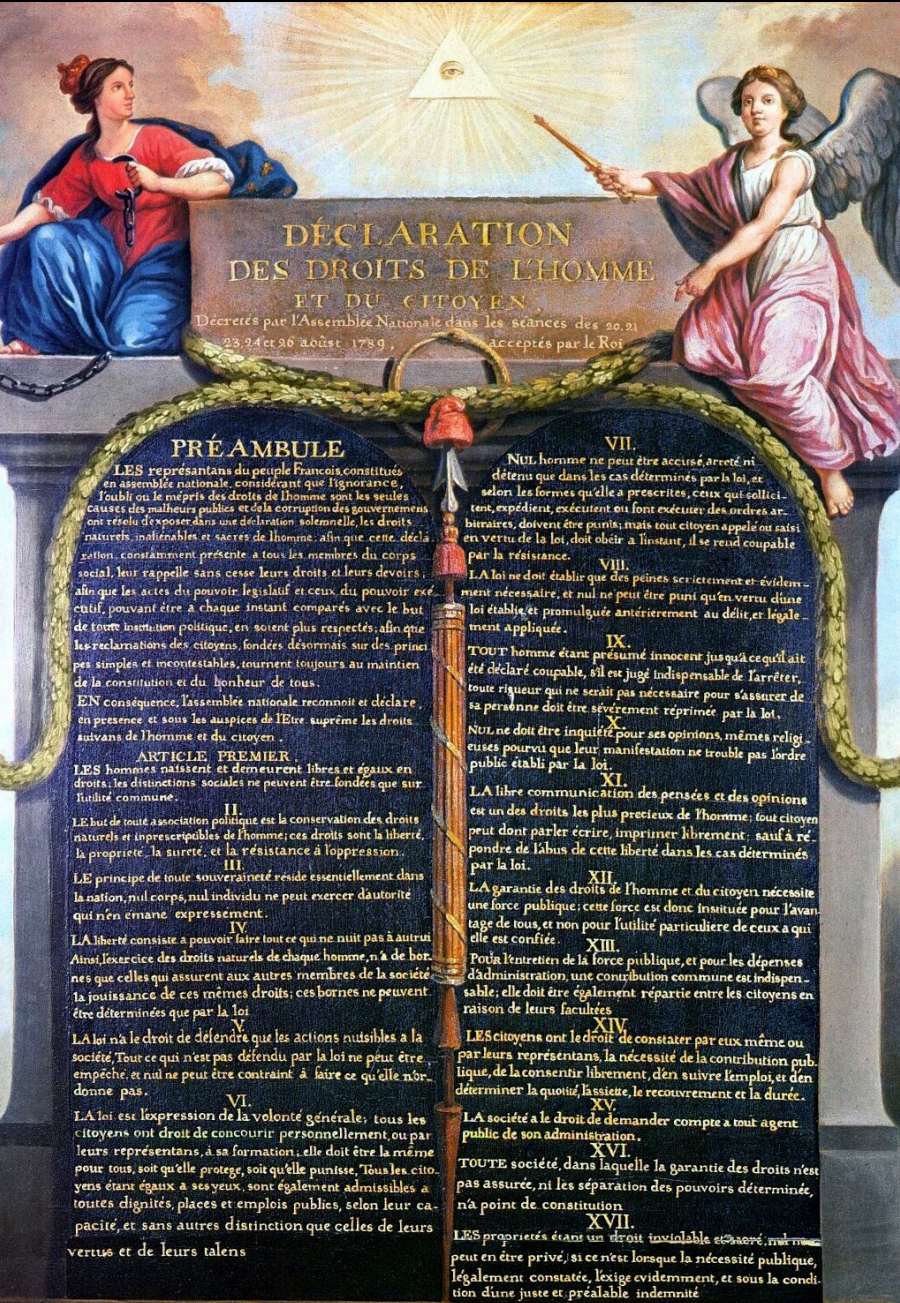 DÉCLARATION
DES DROITS DE L'HOMME
ET DU CITOYEN,
Décretés par l'Assemblée Nationale dans les séances des 20, 21
23, 24 et 26 aoûst 1789, acceptés par le Roi
PRÉAMBULE
LES représantans du peuple Francois, constitués
en assemblée nationale, considérant que l'ignorance,
l'oubli ou le mépris des droits de l'homme sont les seules
causes des malheurs publics et de la corruption des gouvernemens
ont résolu d'exposer dans une déclaration solemnelle, les droits
naturels, inaliénables et sacrés de l'homme: afin que cette décla-
ration, constamment présente a tous les membres du corps
social, leur rappelle sans cesse leurs droits et leurs devoirs;
afin que les actes du pouvoir legislatif et ceux du pouvoir exé-
cutif, pouvant être a chaque instant comparés avec le but
de toute institution politique, en soient plus respectés; afin que
les reclamations des citoyens, fondées désormais sur des princi
pes simples et incontestables, tournent toujours au maintien
de la constitution et du bonheur de tous.
EN conséquence, l'assemblée nationale reconnoit et déclare,
en presence et sous les auspices de l'Etre suprême les droits
suivans de l'homme et du citoyen.
ARTICLE PREMIER.
LES hommes naissent et demeurent libres et égaux en
droits; les distinctions sociales ne peuvent être fondées que sur
l'utilité commune.
II.
LE but de toute association politique est la conservation des droits
naturels et inprescriptibles de l'homme; ces droits sont la liberté,
la propriete, la sureté, et la résistance à l'oppression.
III.
LE principe de toute souveraineté réside essentiellement dans
la nation, nul corps, nul individu ne peut exercer d'autorité
qui n'en émane expressement.
IV.
LA liberté consiste a pouvoir faire tout ce qui ne nuit pas à autrui
Ainsi, l'exercice des droits naturels de chaque homme, n'a de bor-
nes que celles qui assurent aux autres membres de la société
la jouissance de ces mêmes droits; ces bornes ne peuvent
être déterminées que par la loi
V.
LA loi n'a le droit de défendre que les actions nuisibles a la
société, Tout ce qui n'est pas défendu par la loi ne peut être
empêché, et nul ne peut être contraint à faire ce qu'elle n'or-
donne pas.
VI.
LA loi est l'expression de la volonté générale; tous les
citoyens ont droit de concourir personnellement, ou par
leurs représentans, à sa formation; elle doit être la même
pour tous, soit qu'elle protege, soit qu'elle punisse, Tous les cito-
yens étant égaux à ses yeux, sont également admissibles a
toutes dignités, places et emplois publics, selon leur ca-
pacité, et sans autres distinction que celles de leurs
vertus et de leurs talens
VII.
NUL homme ne peut être accusé, arreté ni
détenu que dans les cas déterminés par la loi, et
selon les formes qu'elle a prescrites, ceux qui sollici-
tent, expédient, exécutent ou font exécuter des ordres ar-
bitraires, doivent être punis; mais tout citoyen appelé ou saisi
en vertu de la loi, doit obéir a l'instant, il se rend coupable
par la résistance.
VIII.
LA loi ne doit établir que des peines strictement et évidem-
ment nécessaire, et nul ne peut être puni qu'en vertu d'une
loi établie et promulguée antérierement au délit, et légale-
ment appliquée.
IX.
TOUT homme étant présumé innocent jusqu'a ce qu'il ait
été déclaré coupable, s'il est jugé indispensable de l'arrêter,
toute rigueur qui ne serait pas nécessaire pour s'assurer de
sa personne doit être sévèrement réprimée par la loi.
X.
NUL ne doit être inquiété pour ses opinions, mêmes religi-
euses pourvu que leur manifestation ne trouble pas l'ordre
public établi par la loi.
XI.
LA libre communication des pensées et des opinions
est un des droits les plus precieux de l'homme; tout citoyen
peut dont parler écrire, imprimer librement: sauf à ré-
pondre de l'abus de cette liberté dans les cas déterminés
par la loi.
XII.
LA garantie des droits de l'homme et du citoyen nécessite
une force publique; cette force est donc instituée pour l'avan-
tage de tous, et non pour l'utilité particuliere de ceux a qui
elle est confiée.
XIII.
POUR l'entretien de la force publique, et pour les dépenses
d'administration, une contribution commune est indispen-
sable; elle doit être également répartie entre les citoyens en
raison de leurs facultées
XIV.
LES citoyens ont le droit de constater par eux même ou
par leurs représentans, la nécessité de la contribution pub-
lique, de la consentir librement, d'en suivre l'emploi, et d'en
déterminer la quotité, l'assiette, le recouvrement et la durée.
XV.
LA société a le droit de demander compte a tout agent
public de son administration.
XVI.
TOUTE société, dans laquelle la garantie des droits n'est
pas assurée, ni les séparation des pouvoirs déterminée,
n'a point de constitution
XVII.
LES proprietés étant un droit inviolable et sacré, nul ne
peut en être privé, si ce n'est lorsque la nécessité publique,
légalement constatée, l'exige evidemment, et sous la condi-
tion d'une juste et préalable indemnité